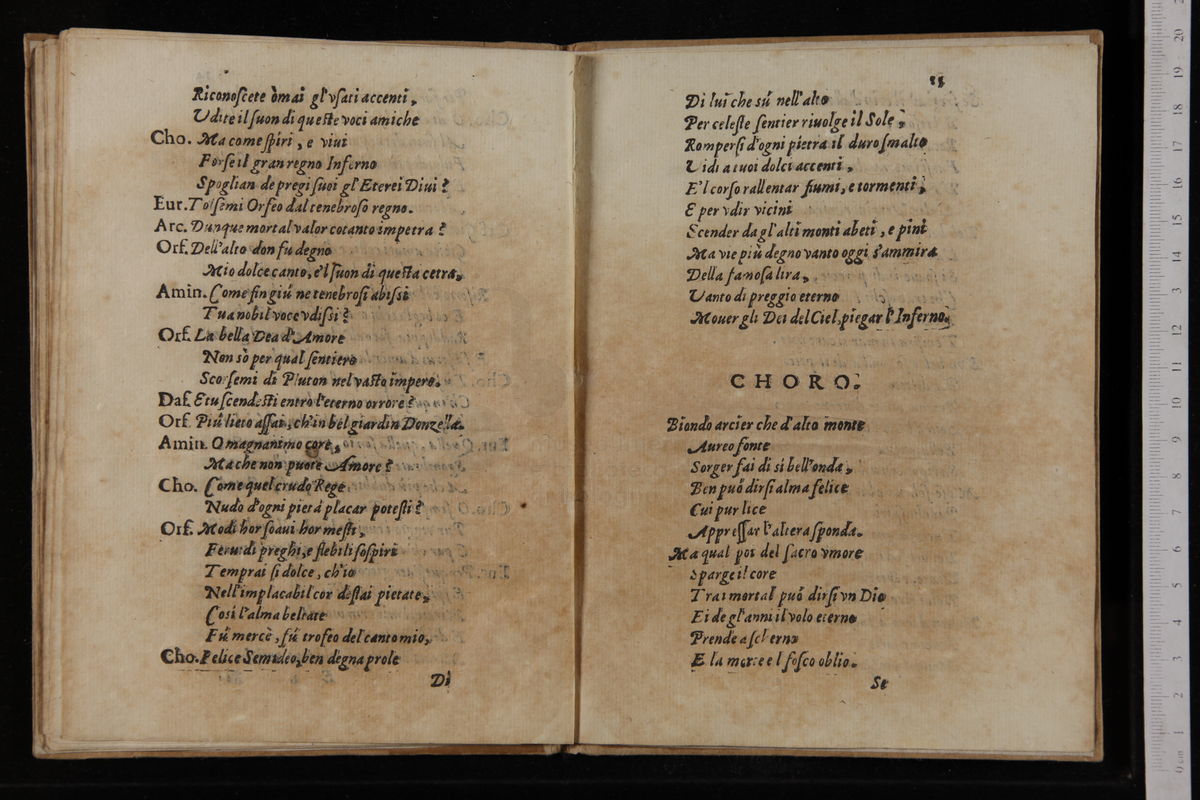 Riconoſcete òmai gl'vſati accenti,
Vdite il ſuon di queſte voci amiche
Cho. Ma come ſpiri, e viui
Forſe il gran regno Inferno
Spoglian de pregi ſuoi gl'Eterei Diui?
Eur. Tolſemi Orfeo dal tenebroſo regno.
Arc. Dunque mortal valor cotanto impetra?
Orf. Dell'alto don fu degno
Mio dolce canto, e'l ſuon di queſta cetra,
Amin. Come ſin giù ne tenebroſi abiſſi
Tua nobil voce vdiſsi?
Orf. La bella Dea d'Amore
Non sò per qual ſentiero
Scorſemi di Pluton nel vaſto impero.
Daf. E tu ſcendeſti entro l'eterno orrore?
Orf. Più lieto aſſai, ch'in bel giardin Donzella.
Amin. O magnanimo core,
Ma che non puote Amore?
Cho. Come quel crudo Rege
Nudo d'ogni pietà placar poteſti?
Orf. Modi hor ſoaui hor meſti,
Feruidi preghi, e flebili ſoſpiri
Temprai ſi dolce, ch'io
Nell'implacabil cor deſtai pietate,
Coſi l'alma beltate
Fù mercè, fù trofeo del canto mio,
Cho. Felice Semideo, ben degna prole
Di
Di lui che sù nell'alto
Per celeſte ſentier riuolge il Sole,
Romperſi d'ogni pietra il duro ſmalto
Vidi a tuoi dolci accenti,
E'l corſo rallentar fiumi, e tormenti,
E per vdir vicini
Scender da gl'alti monti abeti, e pini
Ma vie più degno vanto oggi s'ammira
Della famoſa lira,
Vanto di preggio eterno
Mouer gli Dei del Ciel, piegar l'Inferno.
CHORO.
Biondo arcier che d'alto monte
Aureo fonte
Sorger fai di sì bell'onda,
Ben può dirſi alma felice
Cui pur lice
Appreſſar l'altera ſponda.
Ma qual poi del ſacro vmore
Sparge il core
Tra i mortal può dirſi vn Dio
Ei de gl'anni il volo eterno
Prende a ſcherno
E la morte e'l foſco oblio.
Se